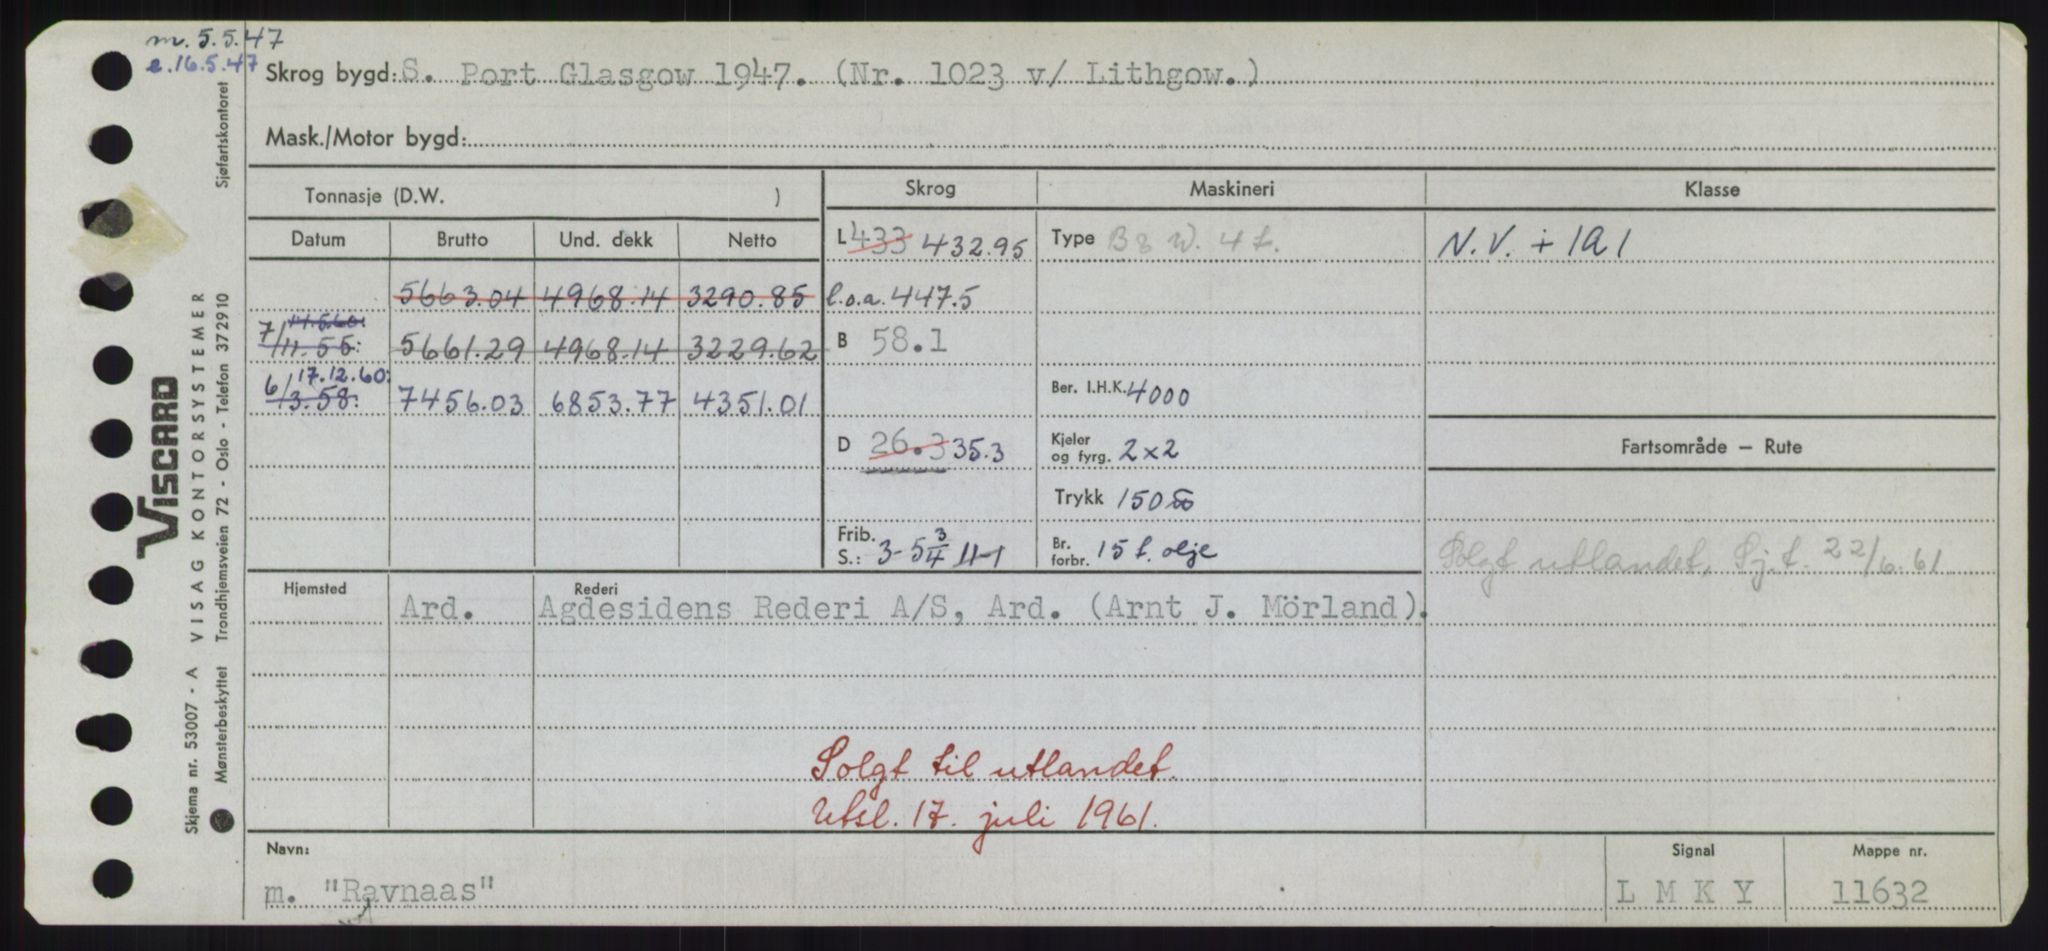 m. 5.5.47
e. 16.5.47
Skrog bygd: S. Port Glasgow 1947. (Nr. 1023 v/ Lithgow.)
Mask./Motor bygd:
Tonnasje (D.W. )
Skrog Maskineri Klasse
Datum Brutto Und. dekk Netto
L 433 432.95 Type B & W. 4 t. N.V. + 1A1
5663.04 4968.14 3290.85 l.o.a. 447.5
11.5.60:
7/11.55: 5661.29 4968.14 3229.62 B 58.1
17.12.60:
6/3.58: 7456.03 6853.77 4351.01 Ber. I.H.K. 4000
D 26.3 35.3 Kjeler og fyrg. 2x2 Fartsområde – Rute
Trykk 150
Frib. S.: 3-5 3/4 Br. forbr. 15 t. olje Solgt utlandet, Sj.t. 22/6.61
Hjemsted Rederi
Ard. Agdesidens Rederi A/S, Ard. (Arnt J. Mörland).
Solgt til utlandet.
Utsl. 17. juli 1961.
Navn: Signal Mappe nr.
m. "Ravnaas" L M K Y 11632
Sjøfartskontoret
VISCARD
VISAG KONTORSYSTEMER
Trondhjemsveien 72 - Oslo - Telefon 372910
Skjema nr. 53007 - A
Mønsterbeskyttet